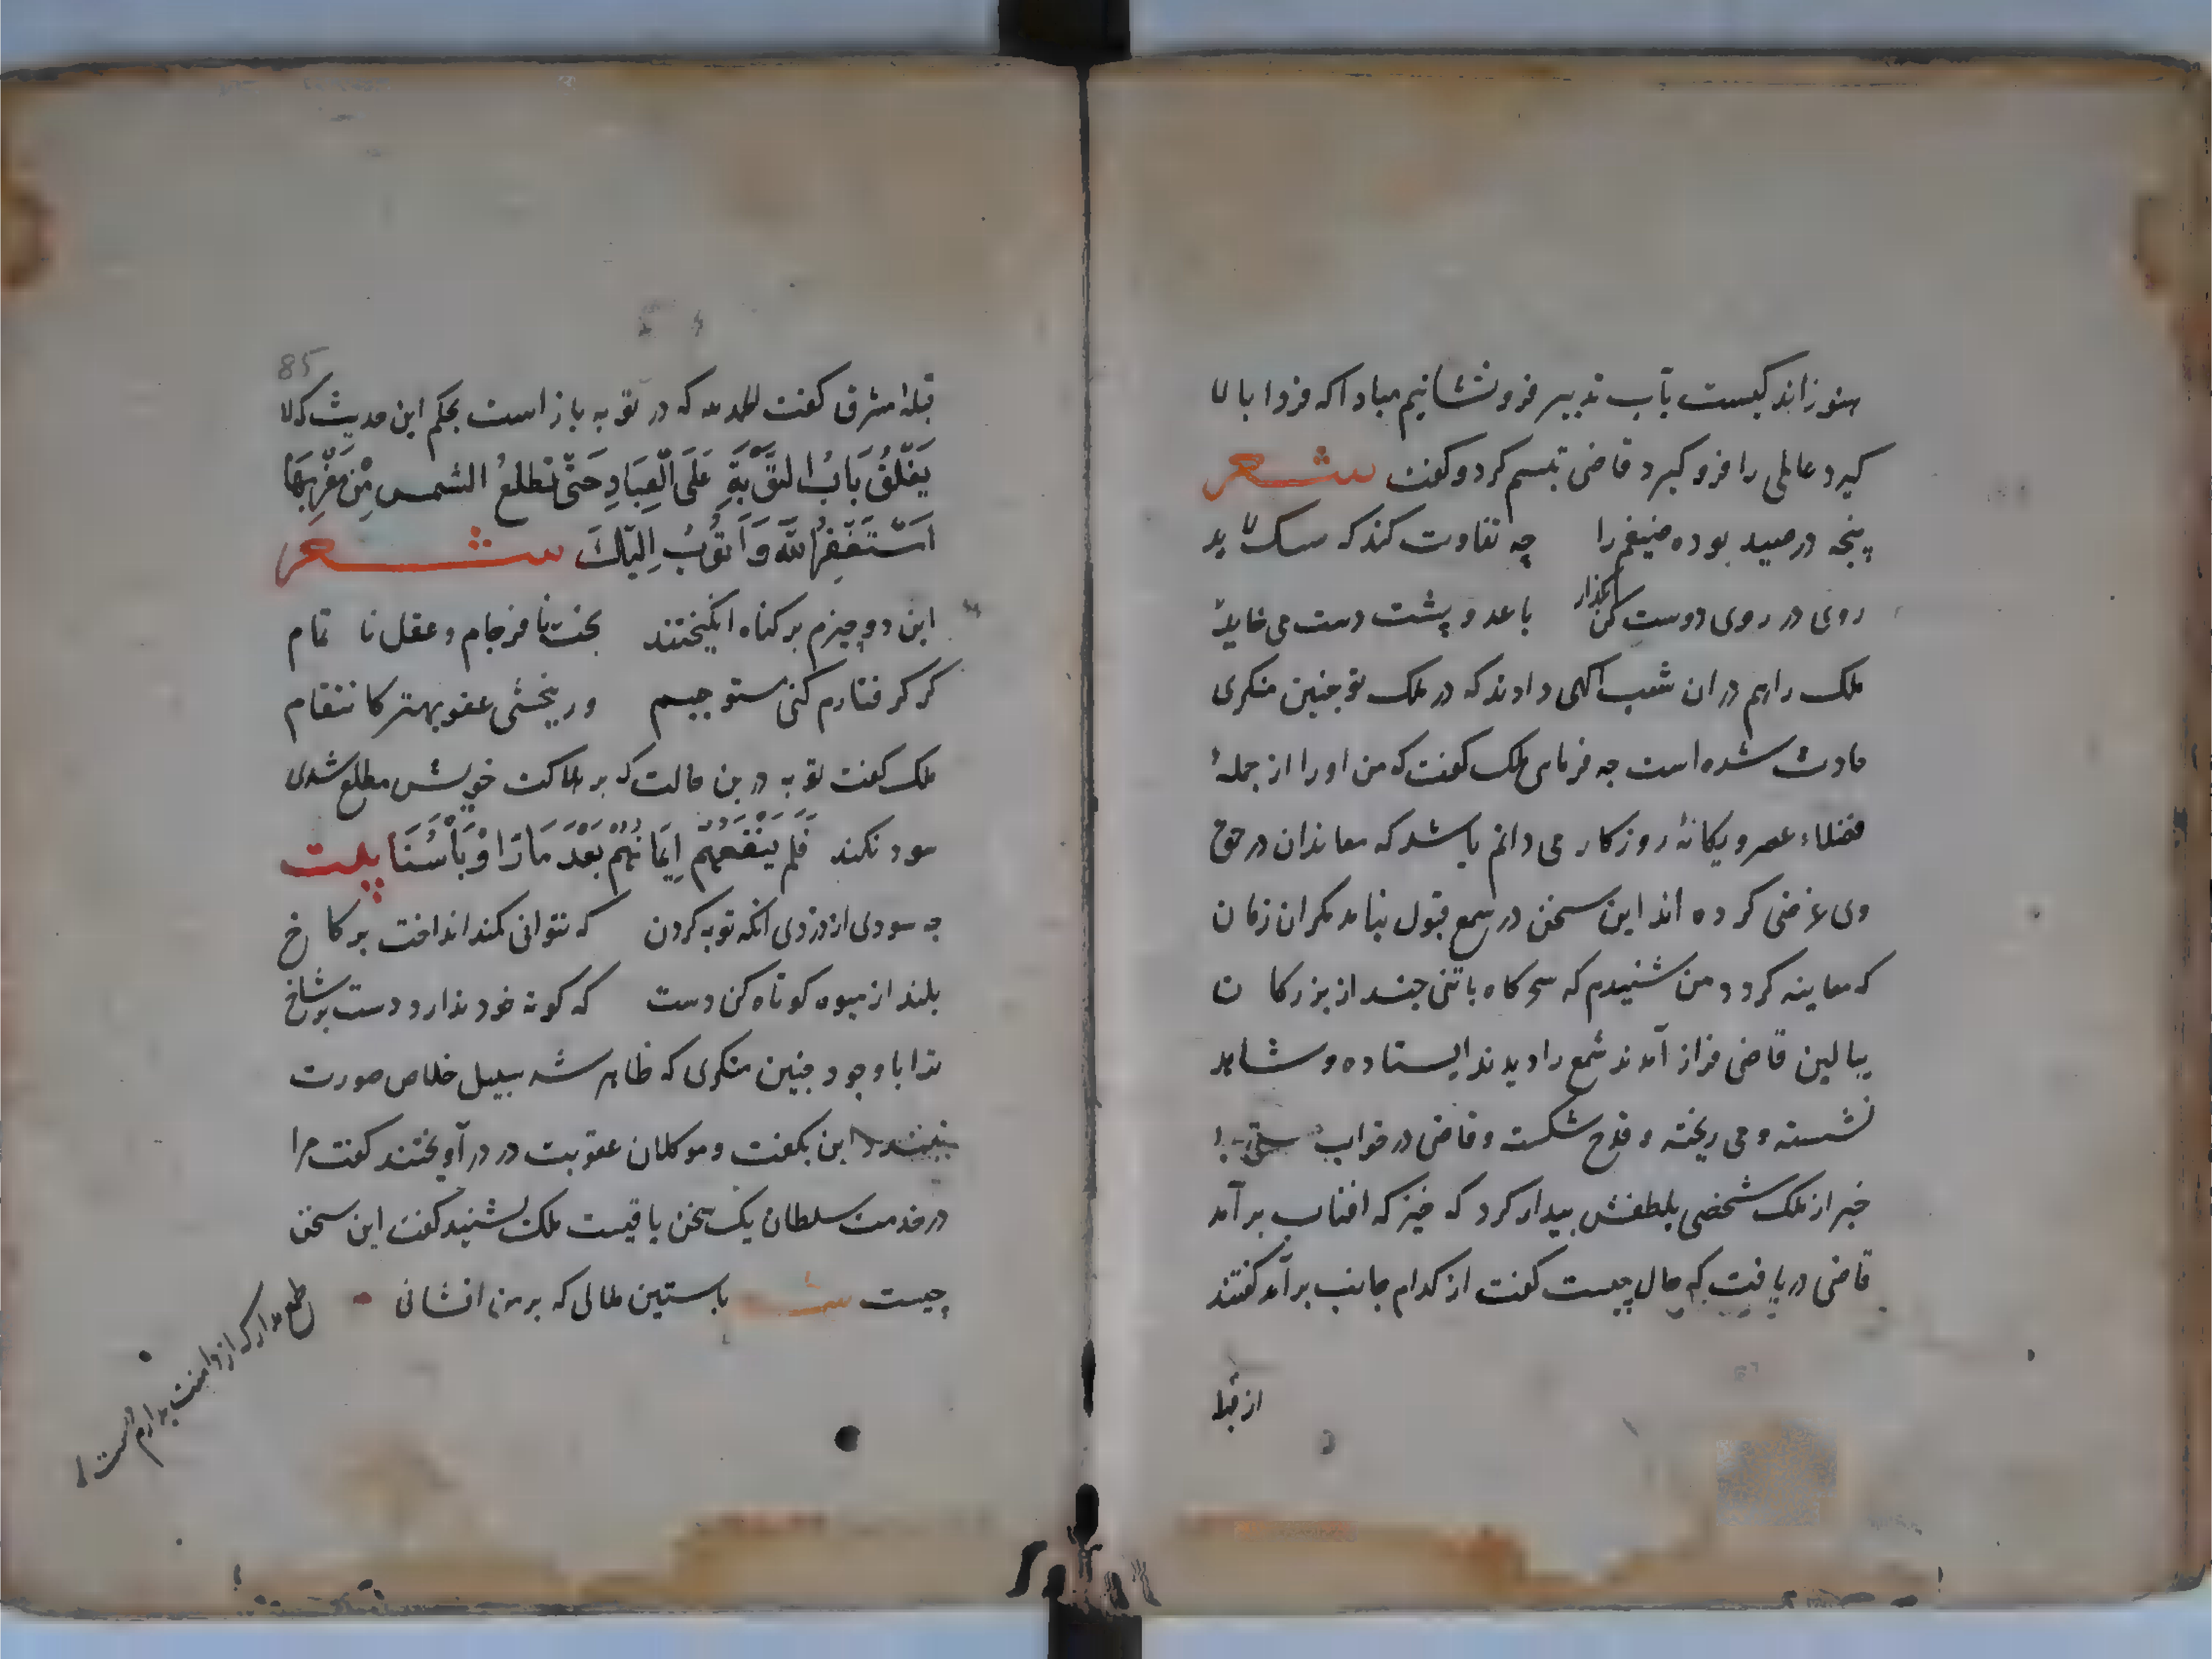 هنوز اندکیست بآب تدبیر فرو نشانیم مبادا که فردا بالا
کیرد عالمی را فرو کیرد قاضی تبسم کرد و کفت شعر
پنجه در صید بوده ضیغم را چه تفاوت کند که سک لاید
روی در روی دوست کن بکذار با عدو پشت دست می خاید
ملک را هم در ان شب اکهی دادند که در ملک تو چنین منکری
حادث شده است چه فرمای ملک کفت که من او را از جملهٔ
فضلاء عصر و یکانهٔ روزکار می دانم باشد که معاندان در حق
وی غرضی کرده اند این سخن در سمع قبول نیاید مکر ان زمان
که معاینه کردد من شنیدم که سحرکاه با تنی چند از بزرکان
ببالین قاضی فراز آمدند شمع را دیدند ایستاده و شاهد
نشسته و می ریخته و قدح شکسته و قاضی در خواب
خبر از ملک شخصی بلطفش بیدار کرد که خیز که افتاب بر آمد
قاضی دریافت که حال چیست کفت از کدام جانب بر آمد کفتند
از قبلهٔ
85
قبلهٔ مشرق کفت الحمد لله که در توبه باز است بحکم این حدیث که لا
یَغْلَقُ بَابُ التَّوْبَةِ عَلَی الْعِبَادِ حَتّی تَطْلعُ الشمس مِنْ مَغْرِبِهَا
اَسْتَغْفِرُ اللّٰهَ وَ اَتُوْبُ اِلَیْکَ شعر
این دو چیزم بر کناه انکیختند بخت نا فرجام و عقل نا تمام
کر کرفتارم کنی مستوجبم ور ببخشی عفو بهتر کانتقام
ملک کفت توبه درین حالت که بر هلاکت خویش مطلع شدی
سود نکند فَلَم یَنْفَعهُمْ اِیمَانُهُمْ بَعْدَ مَا رَاَوْ بَأْسَنَا بیت
چه سودی از دزدی انکه توبه کردن که نتوانی کمند انداخت بر کاخ
بلند از میوه کوتاه کن دست که کوته خود ندارد دست بر شاخ
ترا با وجود چنین منکری که ظاهر شد سبیل خلاص صورت
نبندد این بکفت و موکلان عقوبت در در آویختند کفت مرا
در خدمت سلطان یک سخن باقیست ملک بشنید کفت این سخن
چیست شعر باستین ملالی که بر من افشانی
طمع مدار که از دامنت بدارم دست